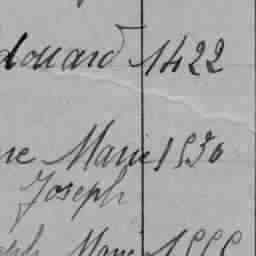 douard 1422
ne Marie 1536
Joseph
eph Marie 1555